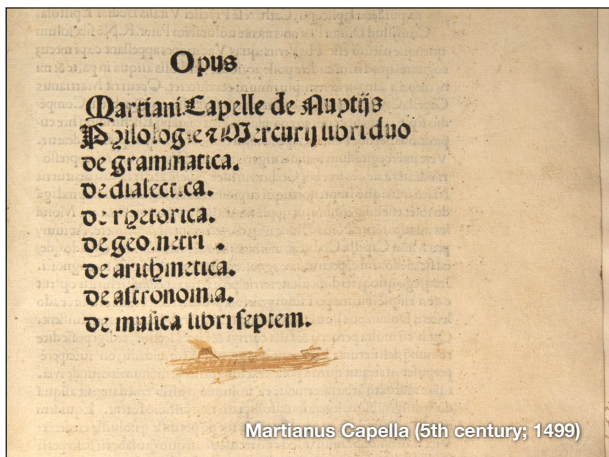 Opus
Martiani Capelle de Nuptijs
Philologie ⁊ Mercurij libri duo
de grammatica.
de dialectica.
de rhetorica.
de geometri .
de arithmetica.
de astronomia.
de musica libri septem.
Martianus Capella (5th century; 1499)